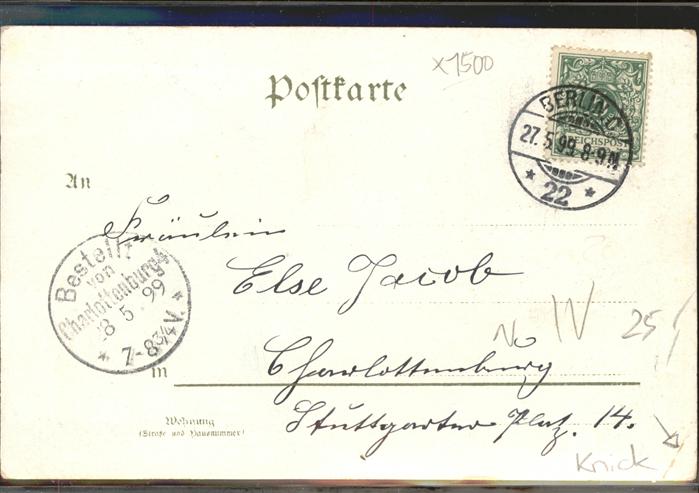 x1500
Postkarte
BERLIN C
REICHSPOST
27.5.99 8-9N
* 22 *
An
Fräulein
Else Jacob
Bestellt
von
Charlottenburg 4
28 5 99
* 7-8¾V. *
No IV 25
in
Charlottenburg
Wohnung
(Straße und Hausnummer)
Stuttgarter Platz. 14.
Knick